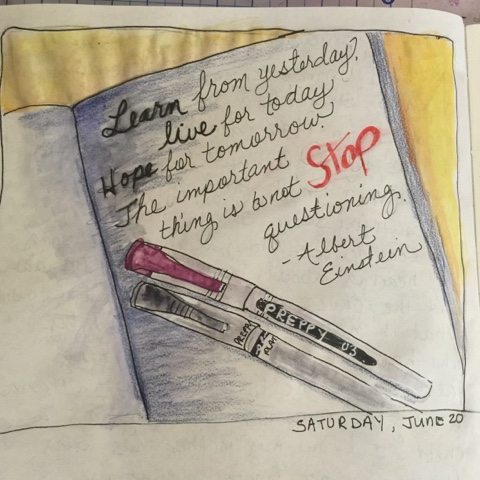 Learn from yesterday,
live for today
Hope for tomorrow.
The important Stop
thing is to not
questioning.
- Albert
Einstein
PREPPY 03
PREPPY
SATURDAY, JUNE 20